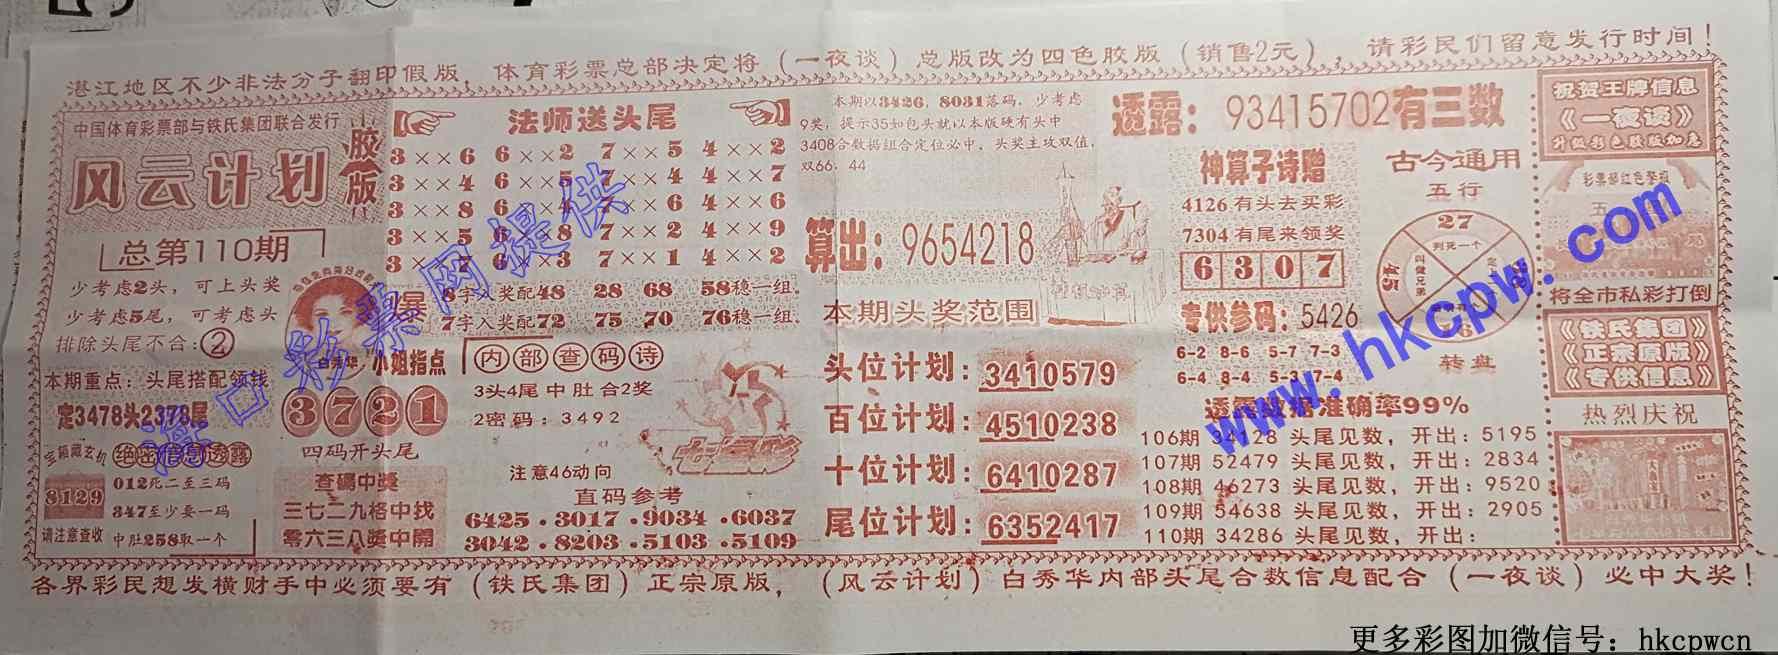 湛江地区不少非法分子翻印假版，体育彩票总部决定将（一夜谈）总版改为四色胶版（销售2元），请彩民们留意发行时间！
中国体育彩票部与铁氏集团联合发行
风云计划
胶版
总第110期
少考虑2头，可上头奖
少考虑5尾，可考虑头
排除头尾不合：②
本期重点：头尾搭配领钱
定3478头2378尾
玄箱藏玄机 绝密信息透露
8129
012死二至三码
347至少要一码
请注意查收
中肚258取一个
法师送头尾
3××6 6××2 7××5 4××2
3××4 6××5 7××4 4××7
3××8 6××4 7××6 4××6
3××5 6××8 7××2 4××9
3××7 6××3 7××1 4××2
爆
8字入奖配48 28 68 58稳一组
7字入奖配72 75 70 76稳一组
白秀华
小姐指点
3721
四码开头尾
查码中奖
三七二九格中找
零六三八奖中开
内部查码诗
3头4尾中肚合2奖
2密码：3492
注意46动向
七星彩
直码参考
6425.3017.9034.6037
3042.8203.5103.5109
本期以3426，8031落码，少考虑
9奖，提示35如包头就以本版硬有头中
3408合数据组合定位必中，头奖主攻双值，
双66，44
算出：9654218
本期头奖范围
头位计划：3410579
百位计划：4510238
十位计划：6410287
尾位计划：6352417
透露：93415702有三数
神算子诗赠
4126有头去买彩
7304有尾来领奖
6307
专供参码：5426
6-2 8-6 5-7 7-3
6-4 8-4 5-3 7-4
古今通用
五行
27
判死一个
叫做兄弟
转盘
透露数据准确率99%
106期 34128 头尾见数，开出：5195
107期 52479 头尾见数，开出：2834
108期 46273 头尾见数，开出：9520
109期 54638 头尾见数，开出：2905
110期 34286 头尾见数，开出：
祝贺王牌信息
《一夜谈》
升级彩色胶版如意
彩票部红色警报
将全市私彩打倒
《铁氏集团》
《正宗原版》
《专供信息》
热烈庆祝
各界彩民想发横财手中必须要有（铁氏集团）正宗原版，（风云计划）白秀华内部头尾合数信息配合（一夜谈）必中大奖！
海口彩票网提供
www.hkcpw.com
更多彩图加微信号：hkcpwcn